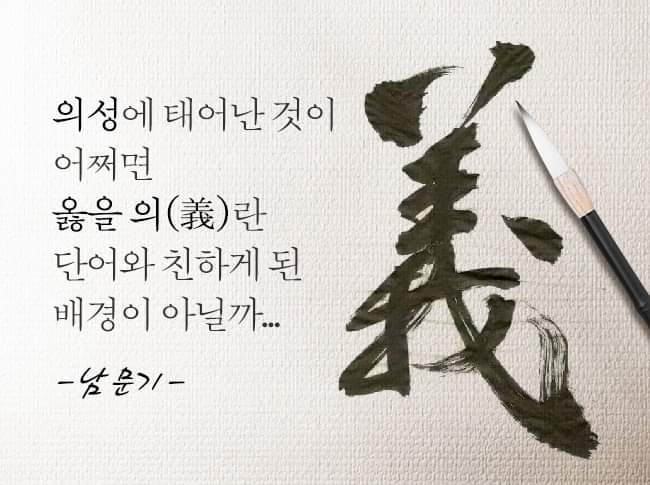 의성에 태어난 것이
어쩌면
옳을 의(義)란
단어와 친하게 된
배경이 아닐까...
-남문기-
義